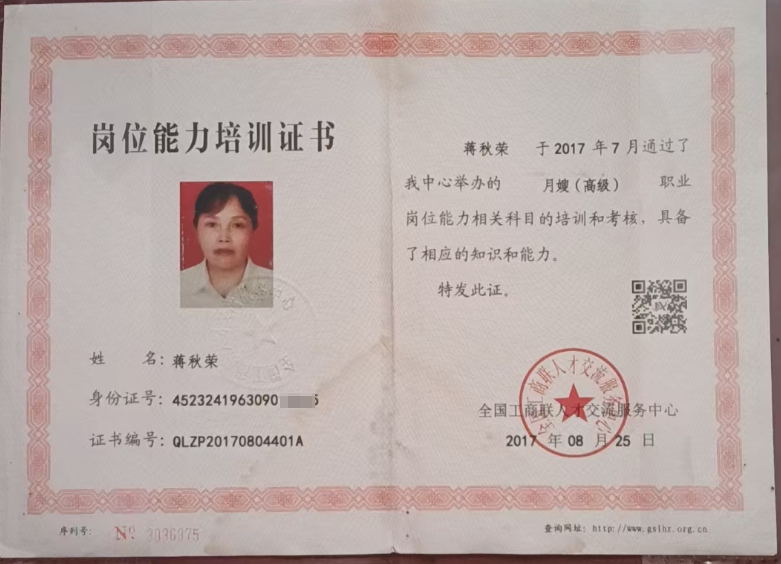 岗位能力培训证书
姓 名：蒋秋荣
身份证号：4523241963090 5
证书编号：QLZP20170804401A
序列号： № 3036075
蒋秋荣 于 2017 年 7 月通过了
我中心举办的 月嫂（高级） 职业
岗位能力相关科目的培训和考核，具备
了相应的知识和能力。
特发此证。
全国工商联人才交流服务中心
全国工商联人才交流服务中心
2017 年 08 月 25 日
查询网址：http://www.gslhr.org.cn